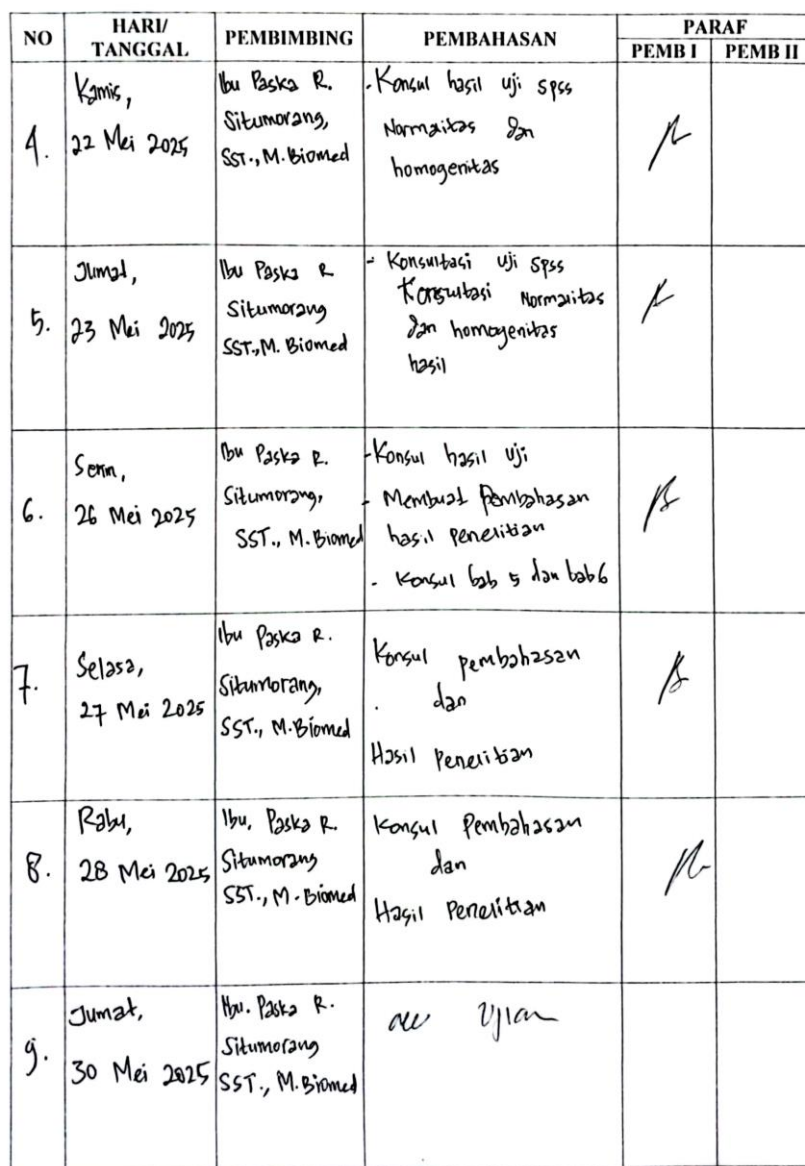 NO HARI/ TANGGAL PEMBIMBING PEMBAHASAN PARAF
PEMB I PEMB II
4.
Kamis,
22 Mei 2025
Ibu Paska R.
Situmorang,
SST., M. Biomed
- Konsul hasil uji spss
Normalitas dan
homogenitas
5.
Jumat,
23 Mei 2025
Ibu Paska R
Situmorang
SST., M. Biomed
- Konsultasi uji spss
Konsultasi Normalitas
dan homogenitas
hasil
6.
Senin,
26 Mei 2025
Ibu Paska R.
Situmorang,
SST., M. Biomed
- Konsul hasil uji
- Membuat Pembahasan
hasil penelitian
- Konsul bab 5 dan bab 6
7.
Selasa,
27 Mei 2025
Ibu Paska R.
Situmorang,
SST., M. Biomed
Konsul pembahasan
. dan
Hasil Penelitian
8.
Rabu,
28 Mei 2025
Ibu. Paska R.
Situmorang
SST., M. Biomed
Konsul Pembahasan
dan
Hasil Penelitian
9.
Jumat,
30 Mei 2025
Ibu. Paska R.
Situmorang
SST., M. Biomed
Ujian